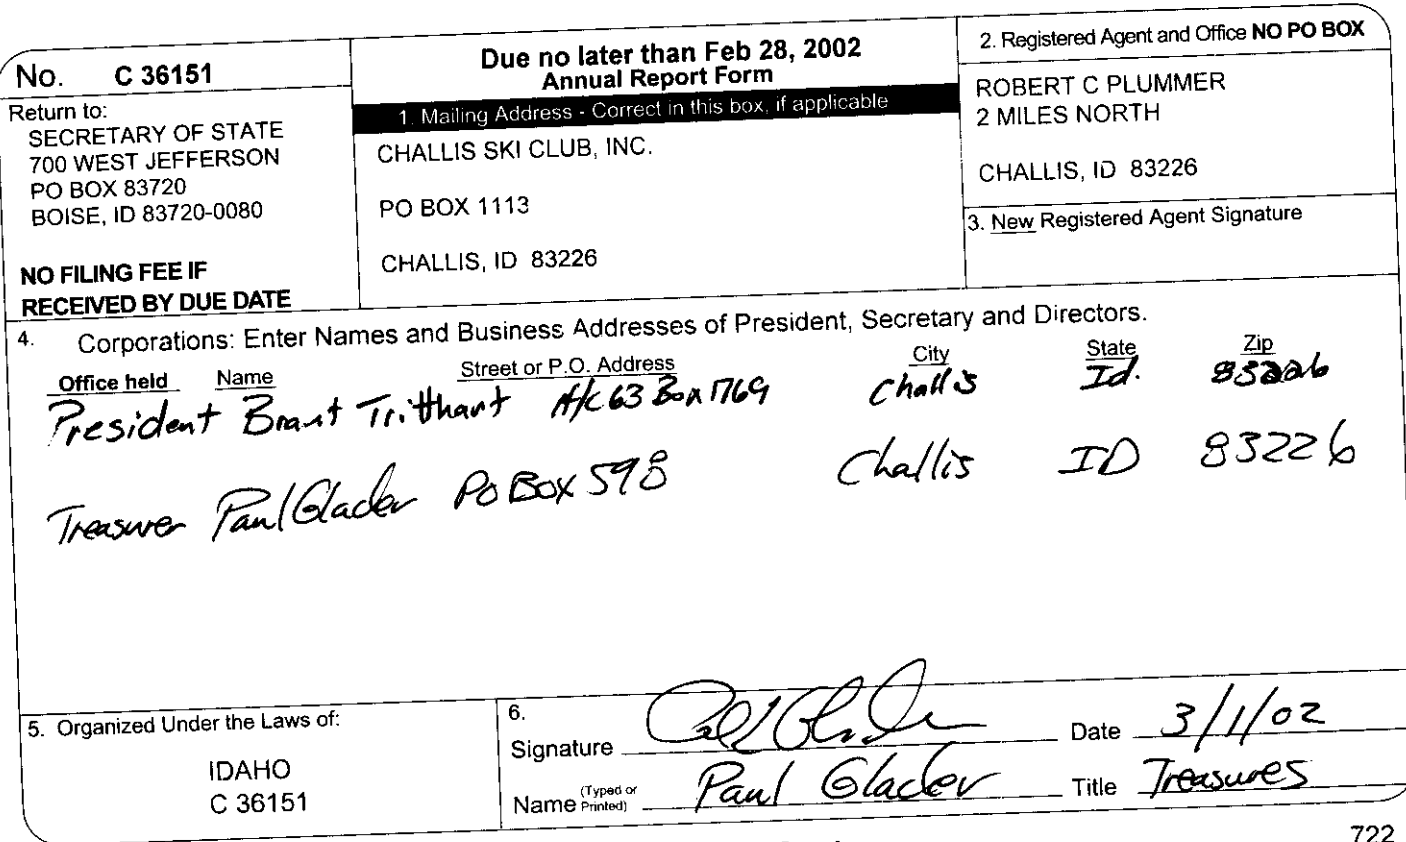 No. C 36151
Return to:
SECRETARY OF STATE
700 WEST JEFFERSON
PO BOX 83720
BOISE, ID 83720-0080
NO FILING FEE IF
RECEIVED BY DUE DATE
Due no later than Feb 28, 2002
Annual Report Form
1. Mailing Address - Correct in this box, if applicable
CHALLIS SKI CLUB, INC.
PO BOX 1113
CHALLIS, ID 83226
2. Registered Agent and Office NO PO BOX
ROBERT C PLUMMER
2 MILES NORTH
CHALLIS, ID 83226
3. New Registered Agent Signature
4. Corporations: Enter Names and Business Addresses of President, Secretary and Directors.
Office held Name Street or P.O. Address City State Zip
President Brant Tritthart H/C 63 Box 1769 Challis Id. 83226
Treasurer Paul Glader PO Box 598 Challis ID 83226
5. Organized Under the Laws of:
IDAHO
C 36151
6.
Signature Date 3/1/02
Name (Typed or Printed) Paul Glader Title Treasures
722